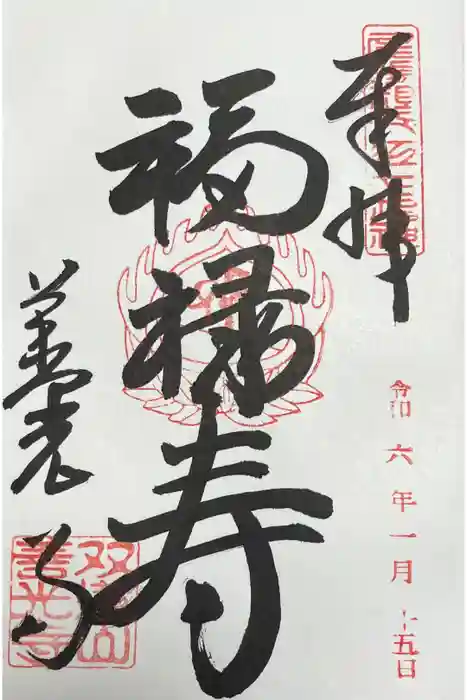 奉拝
令和六年一月十五日
福禄寿
善光寺
善光寺